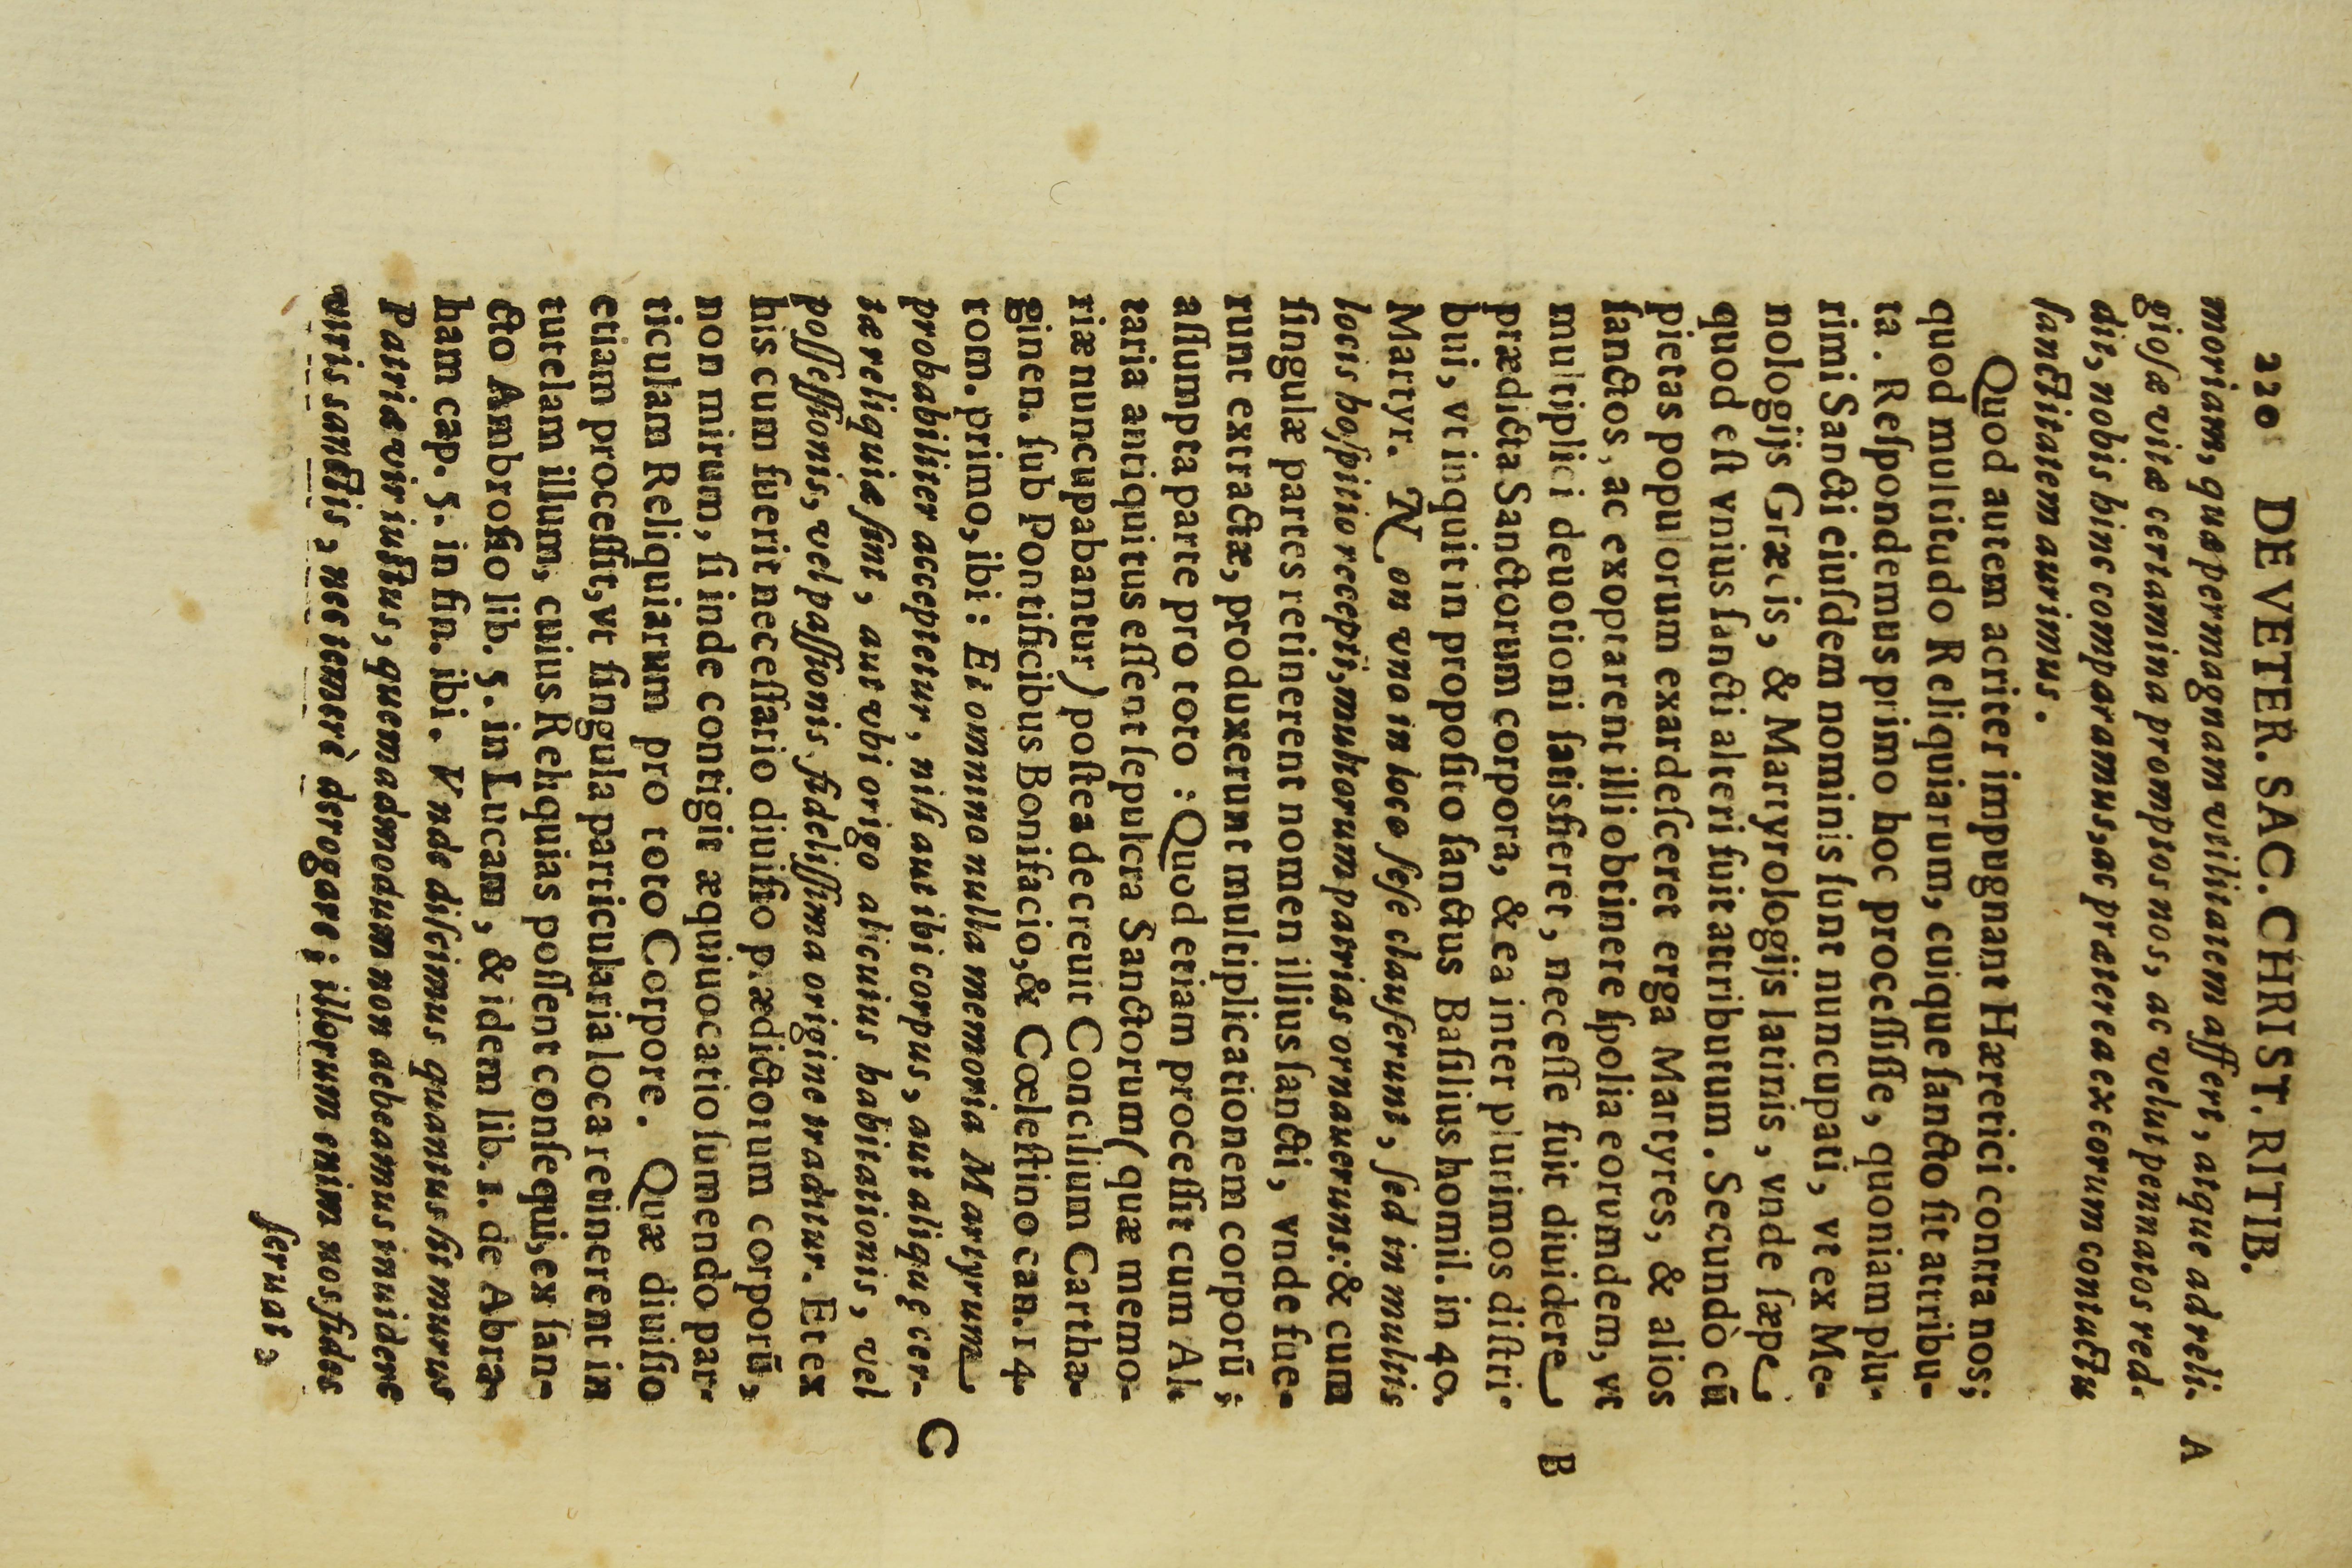 220 DE VETER. SAC. CHRIST. RITIB.
moriam, quæ permagnam vtilitatem affert, atque ad reli- A
gioſæ vitæ certamina promptos nos, ac velut pennatos red-
dit, nobis hinc comparamus, ac præterea ex eorum contactu
ſanctitatem aurimus.
Quod autem acriter impugnant Hæretici contra nos;
quod multitudo Reliquiarum, cuique ſancto ſit attribu-
ta. Reſpondemus primo hoc proceſſiſſe, quoniam plu-
rimi Sancti eiuſdem nominis ſunt nuncupati, vt ex Me-
nologijs Græcis, & Martyrologijs latinis, vnde ſæpe
quod eſt vnius ſancti alteri fuit attributum. Secundò cū
pietas populorum exardeſceret erga Martyres, & alios
ſanctos, ac exoptarent illi obtinere ſpolia eorundem, vt
multiplici deuotioni ſatisfieret, neceſſe fuit diuidere B
prædicta Sanctorum corpora, & ea inter plurimos diſtri-
bui, vt inquit in propoſito ſanctus Baſilius homil. in 40.
Martyr. Non vno in loco ſeſe clauſerunt, ſed in multis
locis hoſpitio recepti, multorum patrias ornauerunt: & cum
ſingulæ partes retinerent nomen illius ſancti, vnde fue-
runt extractæ, produxerunt multiplicationem corporū;
aſſumpta parte pro toto: Quod etiam proceſſit cum Al-
taria antiquitus eſſent ſepulcra Sanctorum (quæ memo-
riæ nuncupabantur) poſtea decreuit Concilium Cartha-
ginen. ſub Pontificibus Bonifacio, & Cœleſtino can. 14.
tom. primo, ibi: Et omnino nulla memoria Martyrum
probabiliter acceptetur, niſi aut ibi corpus, aut aliquę cer- C
tæ reliquiæ ſint, aut vbi origo alicuius habitationis, vel
poſſeſſionis, vel paſſionis fideliſſima origine traditur. Et ex
his cum fuerit neceſſario diuiſio prædictorum corporū,
non mirum, ſi inde contigit æquiuocatio ſumendo par-
ticulam Reliquiarum pro toto Corpore. Quæ diuiſio
etiam proceſſit, vt ſingula particularia loca retinerent in
tutelam illum, cuius Reliquias poſſent conſequi, ex ſan-
cto Ambroſio lib. 5. in Lucam, & idem lib. 1. de Abra-
ham cap. 3. in fin. ibi. Vnde diſcimus quantus ſit murus
Patriæ vir iuſtus, quemadmodum non debeamus inuidere
viris sanctis, nec temerè derogare; illorum enim nos fides
ſeruat,